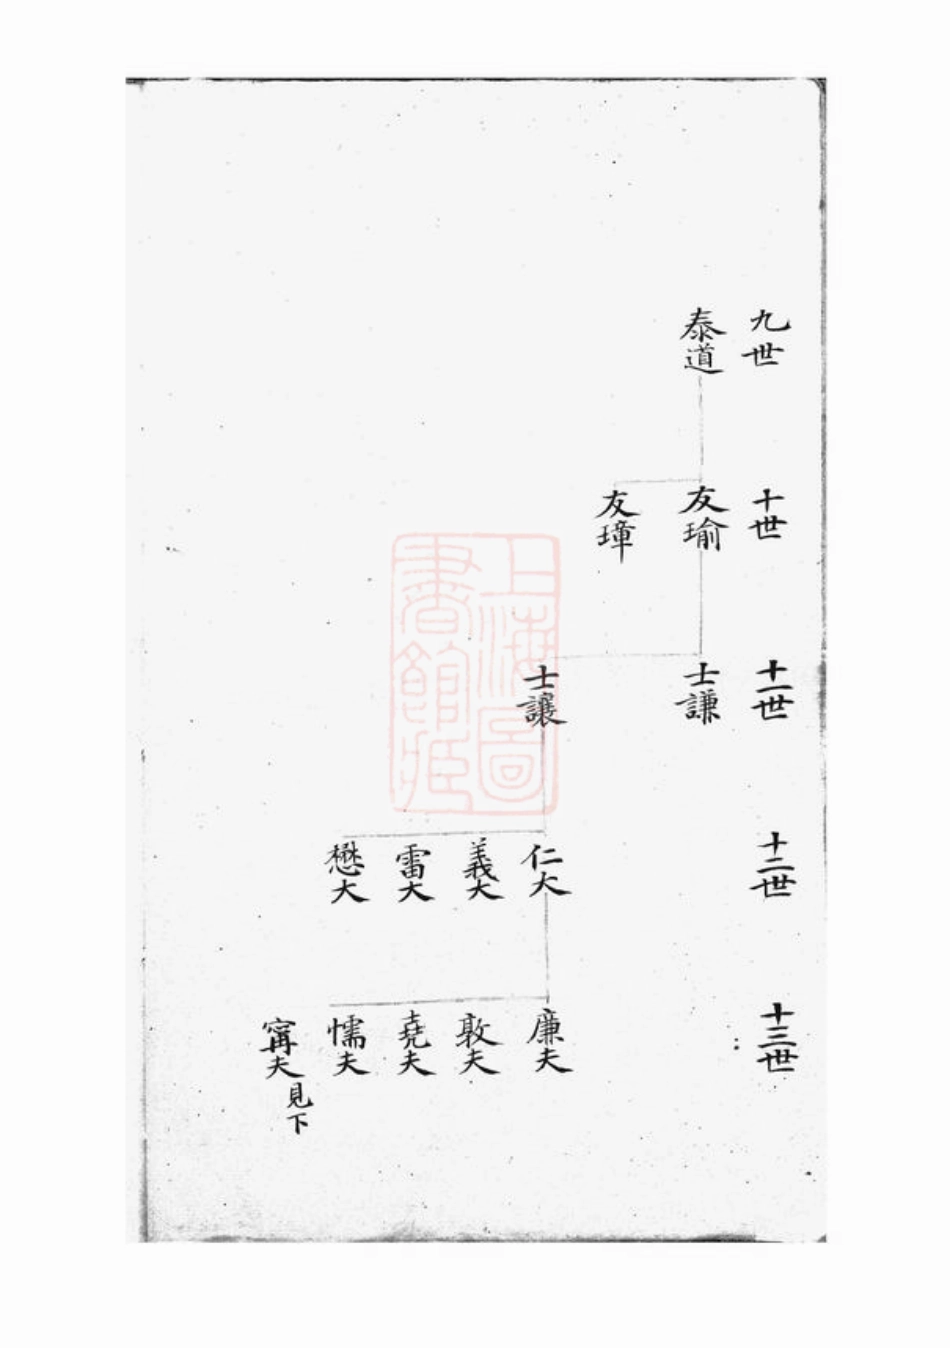 九世
泰道
十世
友瑜
友璋
十一世
士謙
士讓
十二世
仁大
義大
雷大
懋大
十三世
廉夫
敦夫
堯夫
懦夫
甯夫見下
上海圖
書館藏